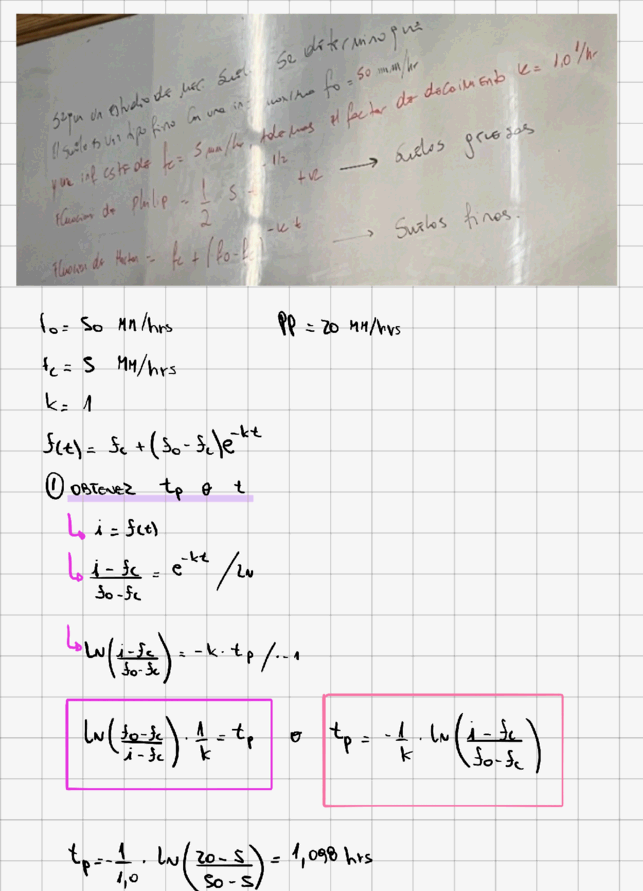 Según un estudio de mec. Suelo Se determino que
El suelo es un tipo fino con una inf maxima fo = 50 mm/hr
y una inf estde fc = 5 mm/hr, además el factor de decaimiento k = 1,0 1/hr
Ecuacion de Philip = 1/2 S t 1/2 + k → Suelos gruesos
Ecuacion de Horton = fc + (fo - fc) -kt → Suelos finos.
fo = 50 MM/hrs PP = 20 MM/hrs
fc = 5 MM/hrs
k = 1
f(t) = fc + (fo - fc)e^-kt
① OBTENER tp o t
↳ i = f(t)
↳ (i - fc)/(fo - fc) = e^-kt / LN
↳ LN((i - fc)/(fo - fc)) = -k · tp / ·-1
LN((fo - fc)/(i - fc)) · 1/k = tp o tp = -1/k · LN((i - fc)/(fo - fc))
tp = -1/1,0 · LN((20 - 5)/(50 - 5)) = 1,098 hrs